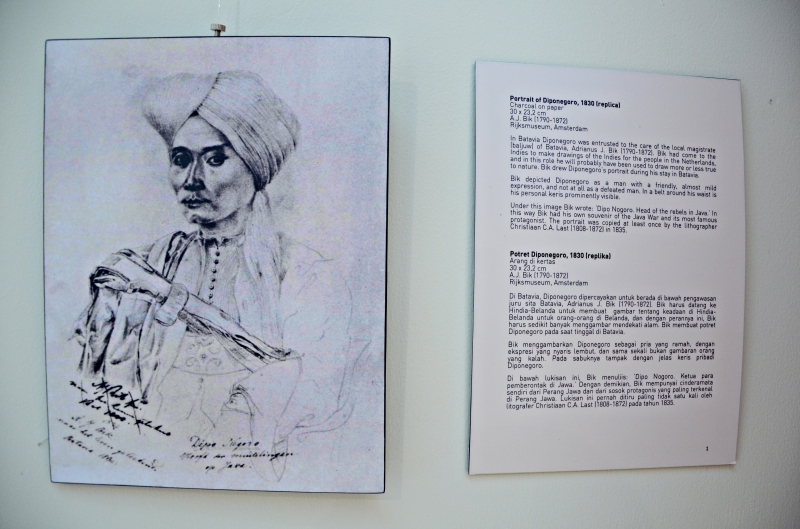 Dipo Nëgoro
op Java.
Portrait of Diponegoro, 1830 (replica)
Charcoal on paper
30 x 23,2 cm
A.J. Bik (1790-1872)
Rijksmuseum, Amsterdam
In Batavia Diponegoro was entrusted to the care of the local magistrate
(baljuw) of Batavia, Adrianus J. Bik (1790-1872). Bik had come to the
Indies to make drawings of the Indies for the people in the Netherlands,
and in this role he will probably have been used to draw more or less true
to nature. Bik drew Diponegoro's portrait during his stay in Batavia.
Bik depicted Diponegoro as a man with a friendly, almost mild
expression, and not at all as a defeated man. In a belt around his waist is
his personal keris prominently visible.
Under this image Bik wrote: 'Dipo Nogoro. Head of the rebels in Java.' In
this way Bik had his own souvenir of the Java War and its most famous
protagonist. The portrait was copied at least once by the lithographer
Christiaan C.A. Last (1808-1872) in 1835.
Potret Diponegoro, 1830 (replika)
Arang di kertas
30 x 23,2 cm
A.J. Bik (1790-1872)
Rijksmuseum, Amsterdam
Di Batavia, Diponegoro dipercayakan untuk berada di bawah pengawasan
juru sita Batavia, Adrianus J. Bik (1790-1872). Bik harus datang ke
Hindia-Belanda untuk membuat gambar tentang keadaan di Hindia-
Belanda untuk orang-orang di Belanda, dan dengan perannya ini, Bik
harus sedikit banyak menggambar mendekati alam. Bik membuat potret
Diponegoro pada saat tinggal di Batavia.
Bik menggambarkan Diponegoro sebagai pria yang ramah, dengan
ekspresi yang nyaris lembut, dan sama sekali bukan gambaran orang
yang kalah. Pada sabuknya tampak dengan jelas keris pribadi
Diponegoro.
Di bawah lukisan ini, Bik menulis: 'Dipo Nogoro. Ketua para
pemberontak di Jawa.' Dengan demikian, Bik mempunyai cinderamata
sendiri dari Perang Jawa dan dari sosok protagonis yang paling terkenal
di Perang Jawa. Lukisan ini pernah ditiru paling tidak satu kali oleh
litografer Christiaan C.A. Last (1808-1872) pada tahun 1835.